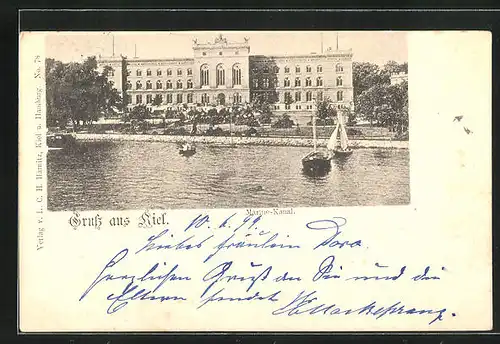 Verlag v. L. C. H. Harnitz, Kiel u. Hamburg No. 78
Marine-Kanal.
Gruß aus Kiel.
10.6.99.
Liebes Fräulein Dora.
Herzlichen Gruß an Sie und die
Eltern sendet